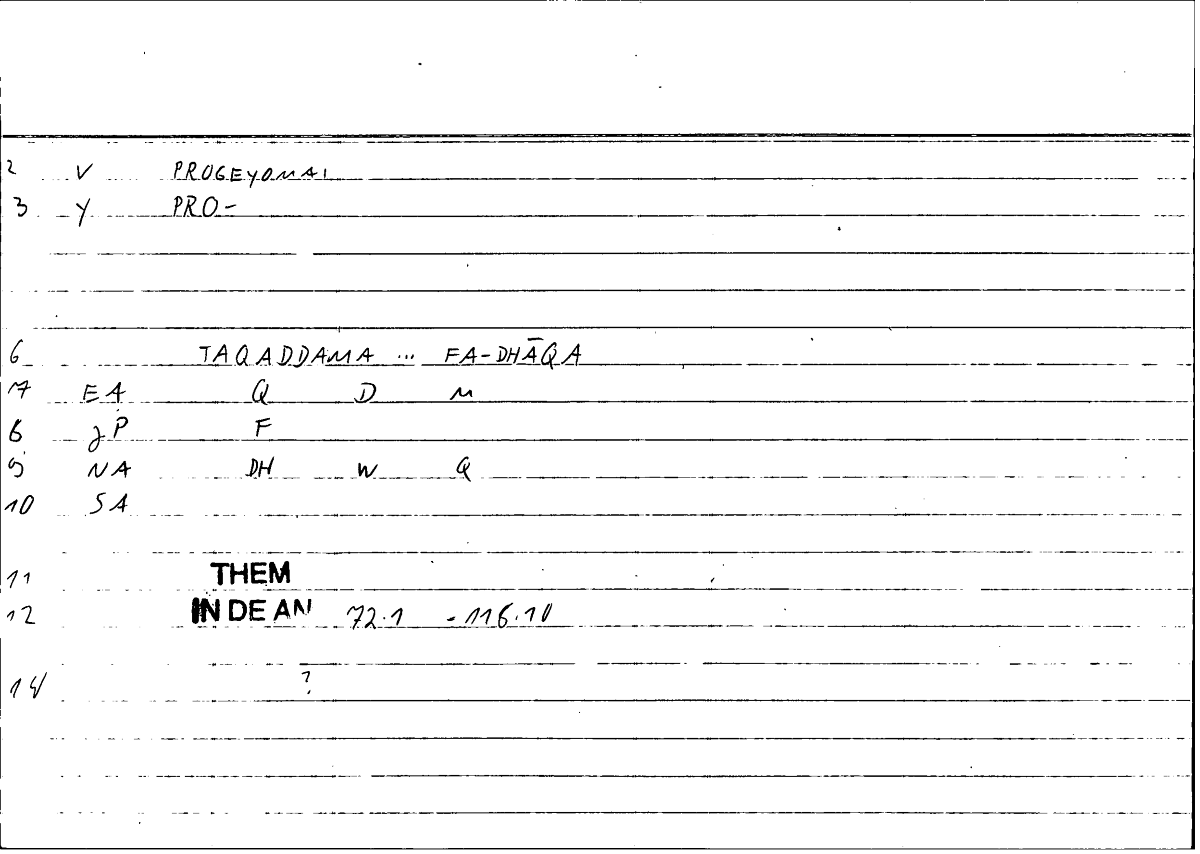 2 V PROGEYOMAI
3 Y PRO-
6 TAQADDAMA ... FA-DHĀQA
7 EA Q D M
8 JP F
9 NA DH W Q
10 SA
11 THEM
12 IN DE AN 72.1 - 116.10
14 ?